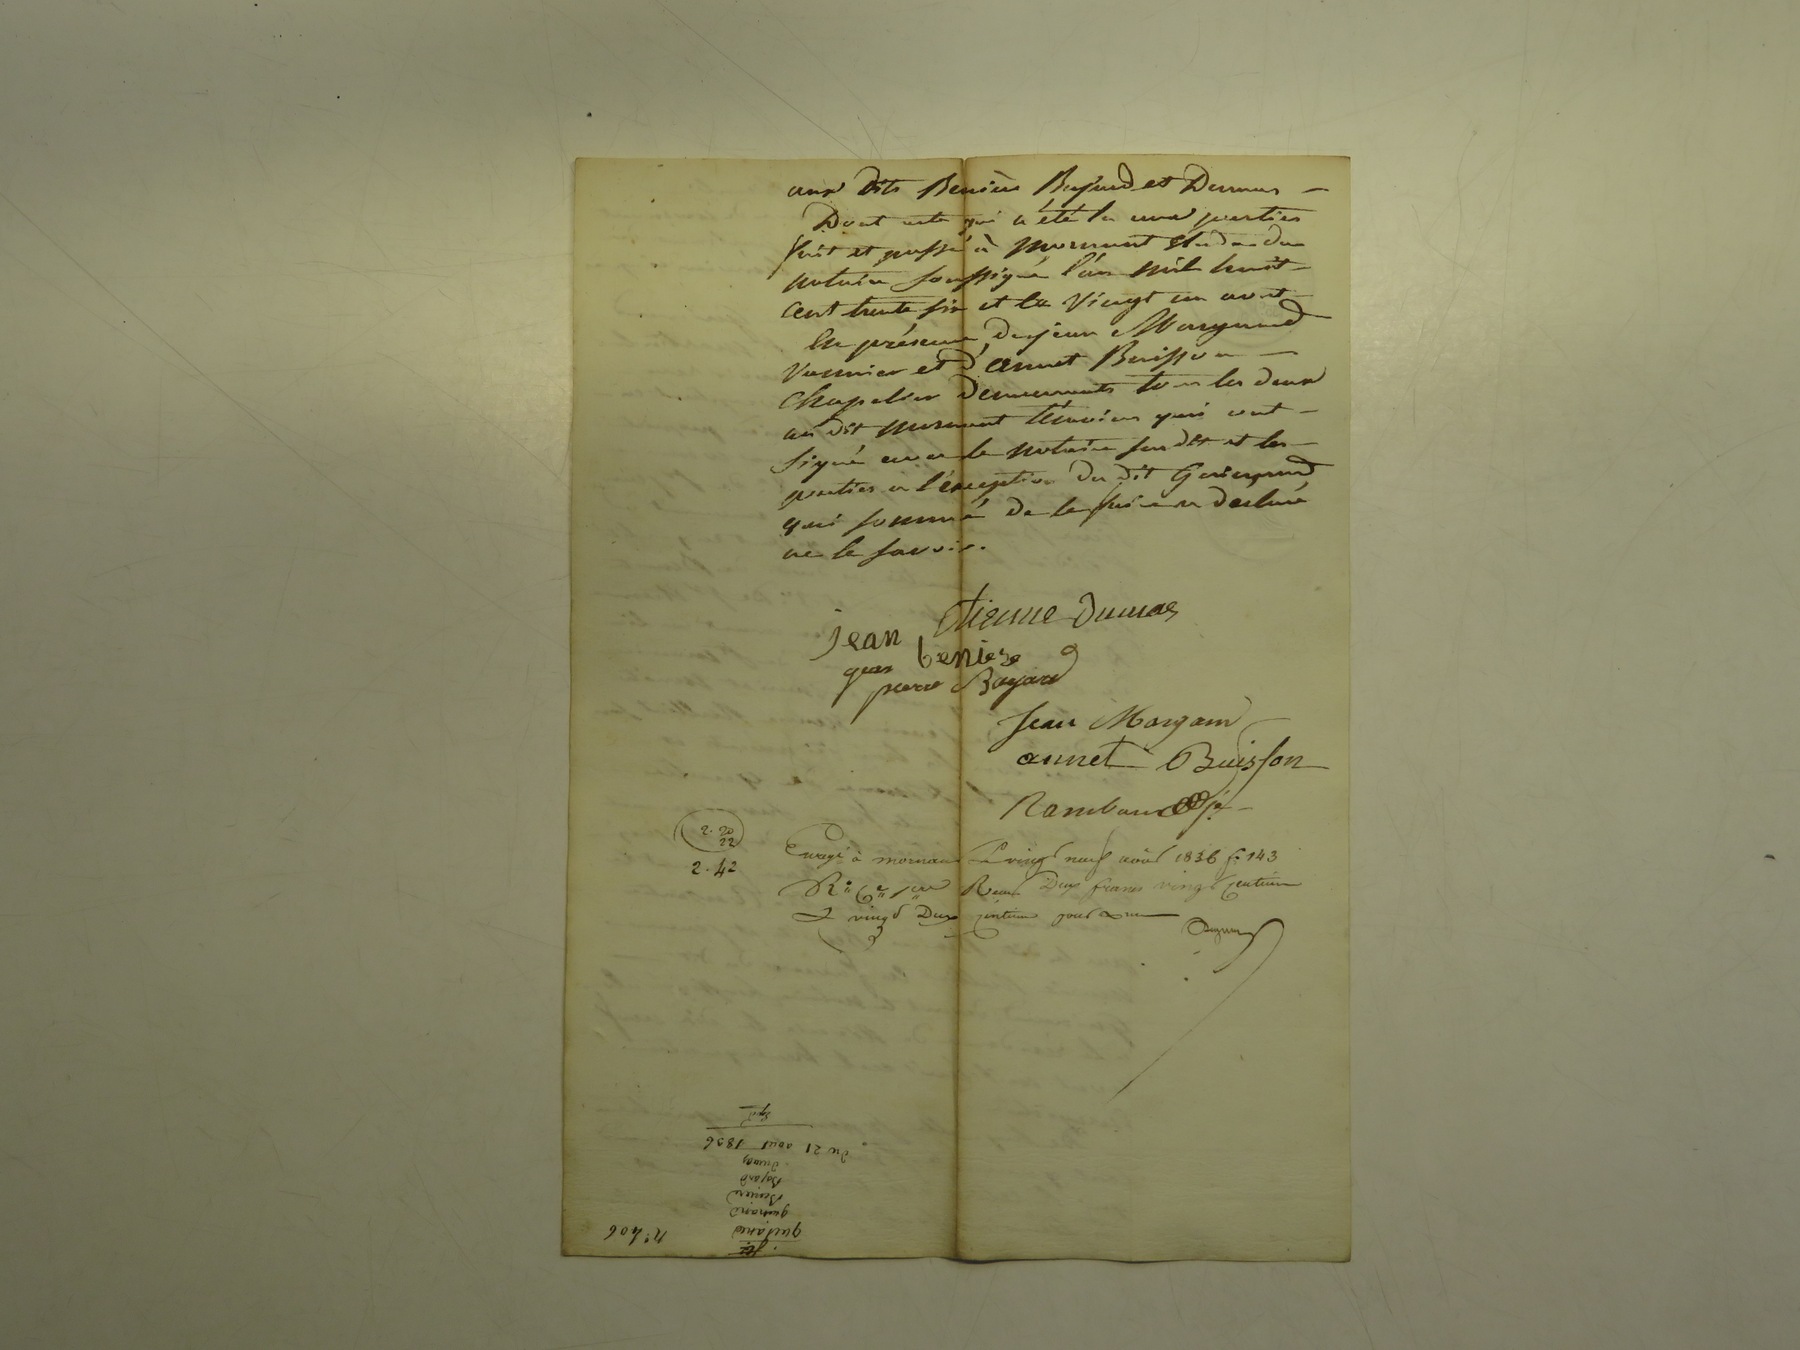 aux dits Benière Bayard et Dumas —
Dont acte qui a été lu aux parties
fait et passé à mornant étude du
notaire soussigné l'an mil huit
cent trente six et le vingt un aout
En présence de jean Margand
Vannier et d'annet Buisson —
chapelier demeurants tous les deux
au dit mornant témoins qui ont
signé avec le notaire susdit et les
parties a l'exception du dit Guinand
qui sommé de le faire a declaré
ne le savoir.
Etienne Dumas
jean beniere
pierre Bayard
Jean Margand
annet Buisson
Rambaud
2. 20
22
2. 42
à mornant Le vingt neuf août 1836 f. 143
Reçu Deux francs vingt centimes
& vingt Deux centimes pour
n° 406
guinand
Beniere
Bayard
Dumas
du 21 aout 1836